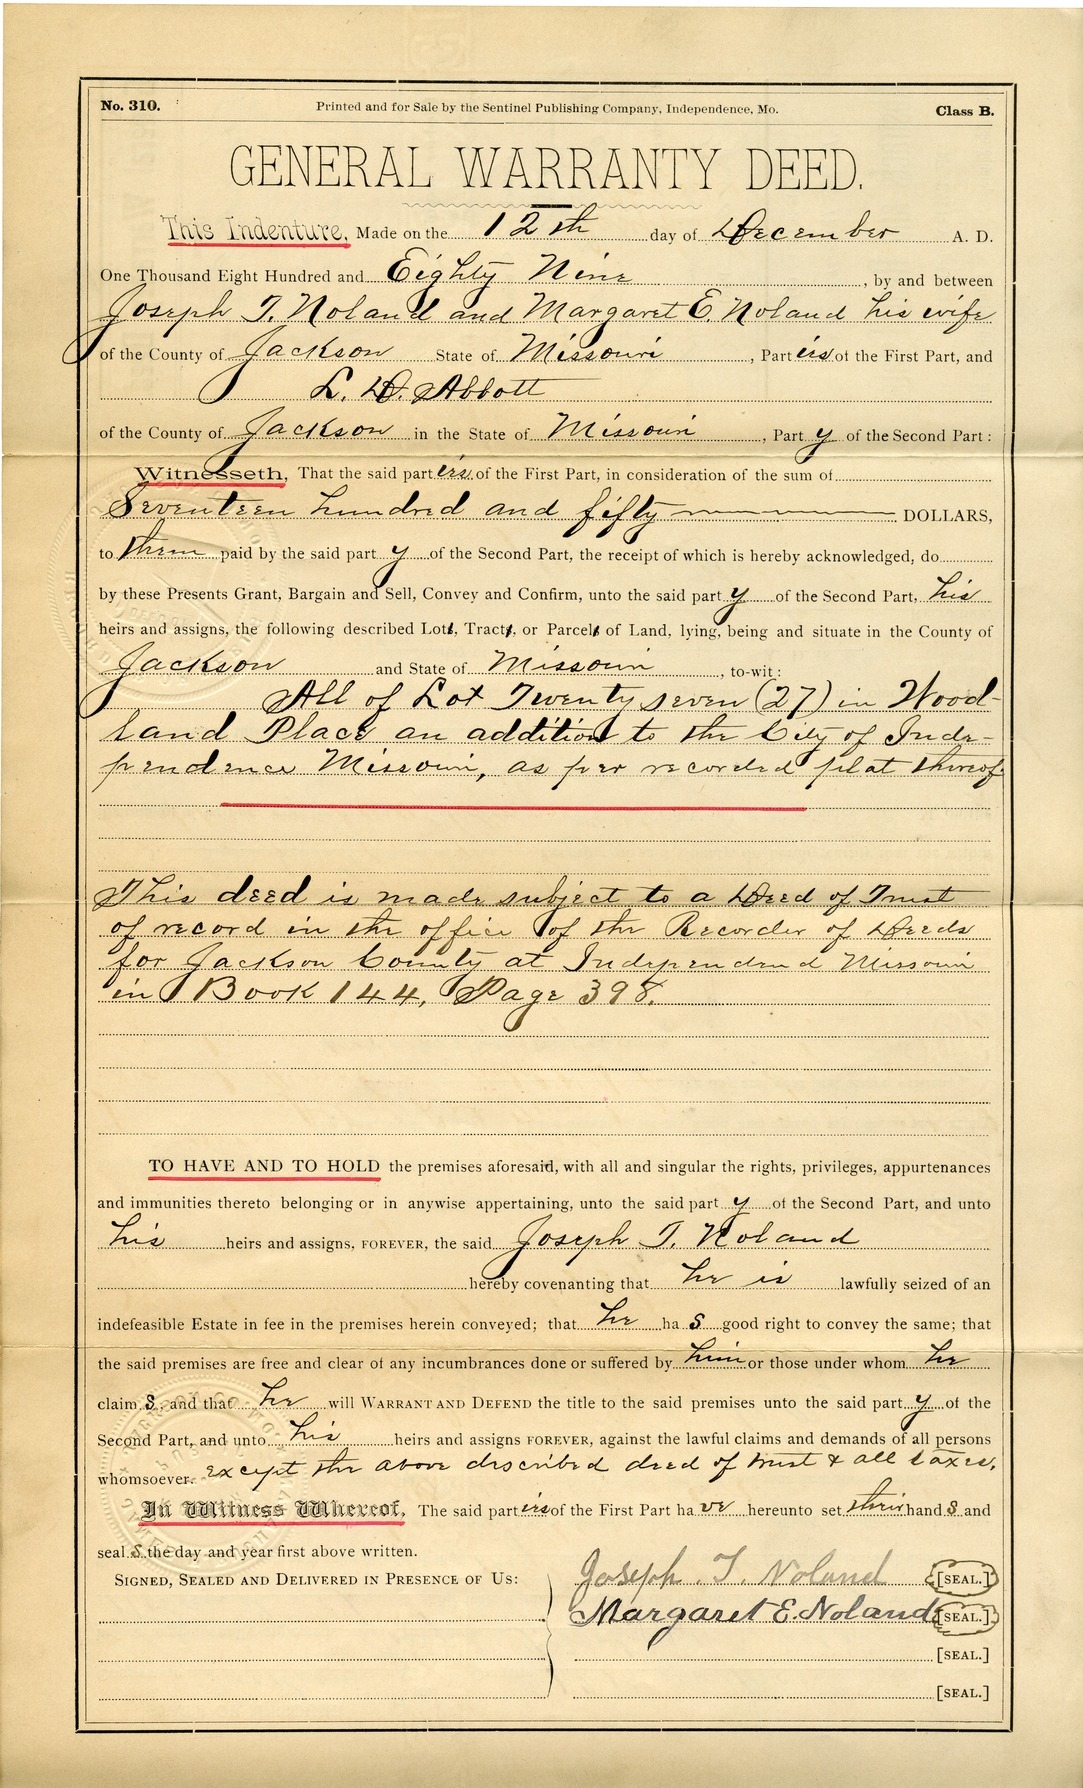 No. 310. Printed and for Sale by the Sentinel Publishing Company, Independence, Mo. Class B.
GENERAL WARRANTY DEED.
This Indenture, Made on the 12th day of December A. D.
One Thousand Eight Hundred and Eighty Nine, by and between
Joseph T. Noland and Margaret E. Noland his wife
of the County of Jackson State of Missouri, Parties of the First Part, and
L. D. Abbott
of the County of Jackson in the State of Missouri, Party of the Second Part:
Witnesseth, That the said parties of the First Part, in consideration of the sum of
Seventeen hundred and fifty DOLLARS,
to them paid by the said party of the Second Part, the receipt of which is hereby acknowledged, do
by these Presents Grant, Bargain and Sell, Convey and Confirm, unto the said party of the Second Part, his
heirs and assigns, the following described Lot, Tract, or Parcel of Land, lying, being and situate in the County of
Jackson and State of Missouri, to-wit:
All of Lot Twenty seven (27) in Wood-
land Place an addition to the City of Inde-
pendence Missouri, as per recorded plat thereof
This deed is made subject to a Deed of Trust
of record in the office of the Recorder of Deeds
for Jackson County at Independend Missouri
in Book 144, Page 398.
TO HAVE AND TO HOLD the premises aforesaid, with all and singular the rights, privileges, appurtenances
and immunities thereto belonging or in anywise appertaining, unto the said party of the Second Part, and unto
his heirs and assigns, FOREVER, the said Joseph T. Noland
hereby covenanting that he is lawfully seized of an
indefeasible Estate in fee in the premises herein conveyed; that he has good right to convey the same; that
the said premises are free and clear of any incumbrances done or suffered by him or those under whom he
claims, and that he will WARRANT AND DEFEND the title to the said premises unto the said party of the
Second Part, and unto his heirs and assigns FOREVER, against the lawful claims and demands of all persons
whomsoever. except the above described deed of trust & all taxes.
In Witness Whereof, The said parties of the First Part have hereunto set their hands and
seals the day and year first above written.
SIGNED, SEALED AND DELIVERED IN PRESENCE OF US: Joseph T. Noland [SEAL.]
Margaret E. Noland [SEAL.]
[SEAL.]
[SEAL.]